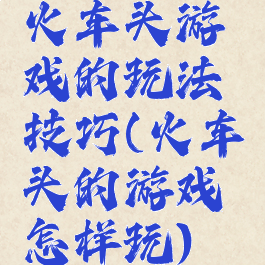 火车头游
戏的玩法
技巧(火车
头的游戏
怎样玩)